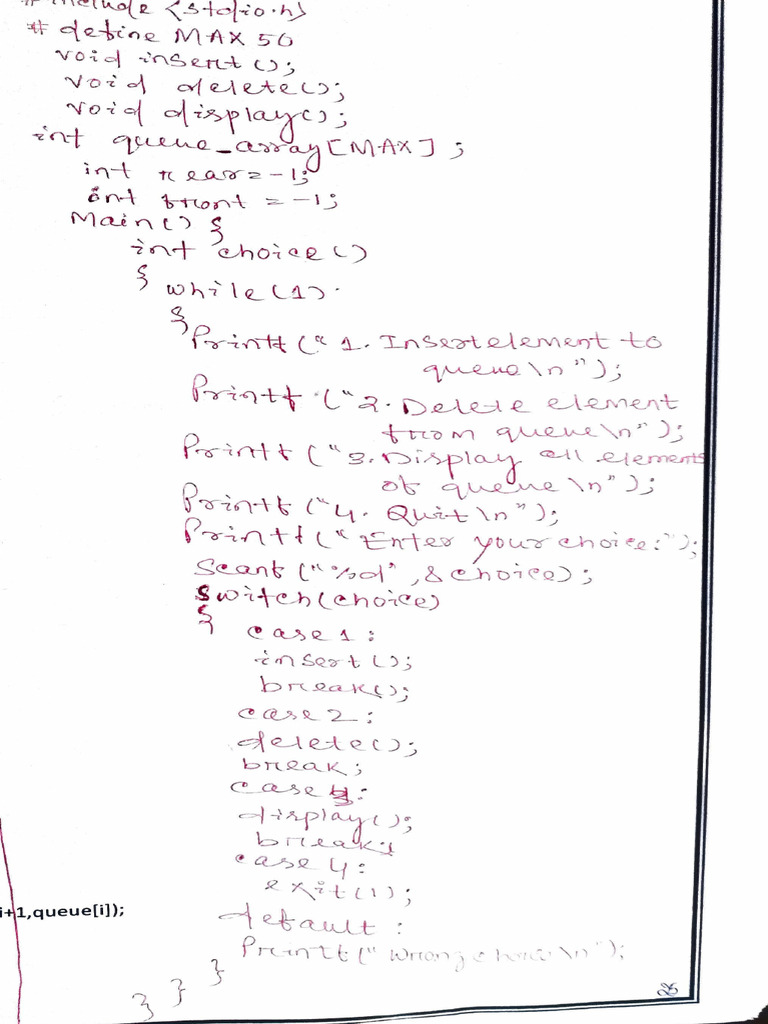 # include <stdio.h>
# define MAX 50
void insert ();
void delete();
void display();
int queue_array[MAX];
int rear=-1;
int front = -1;
Main() {
int choice()
{ while (1).
{
Printf (" 1. Insert element to
queue \n ");
Printf ("2. Delete element
from queue\n");
Printf ("3. Display all elements
of queue \n");
Printf ("4. Quit \n ");
Printf (" Enter your choice:");
Scanf ("%d" , & choice);
Switch(choice)
{
case 1:
insert ();
break();
case 2:
delete();
break;
case 3:
display();
break;
case 4:
exit(1);
i+1,queue[i]);
default :
Printf (" Wrong choice \n ");
}
} }
25